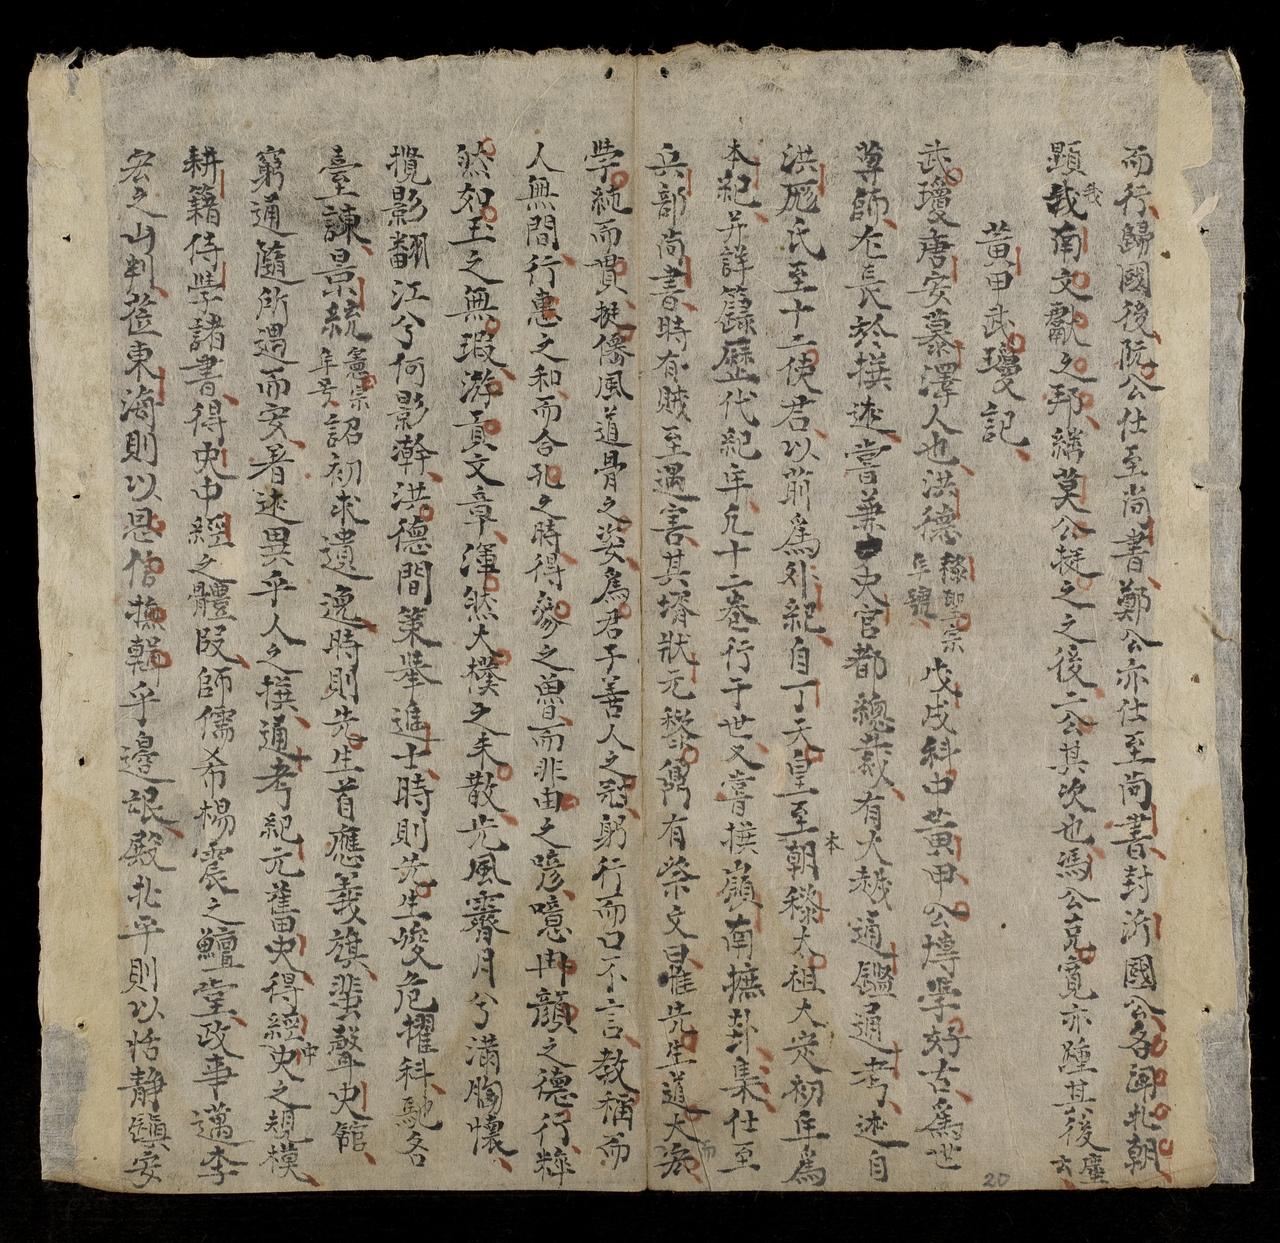 而行歸國後阮公仕至尚書鄭公亦仕至尚書封沂國公名聞北朝
顯我南文獻之邦繼莫公挺之之後二公其次也馮公克寬亦踵其後塵云
我
黃甲武瓊記
武瓊唐安慕澤人也洪德黎聖宗年號戊戌科中黃甲公博学好古爲世
尊師尤長於撰述嘗兼史官都總裁有大越通鑑通考述自
洪厖氏至十二使君以前爲外紀自丁天皇至本朝黎太祖大定初年爲
本紀并詳籙歷代紀年凡十二卷行于世又嘗撰嶺南摭卦集仕至
兵部尚書時有賊至遇害其壻狀元黎鼐有祭文曰惟先生道大而
学純而貫挺僊風道骨之姿爲君子善人之冠躬行而口不言教稱而
人無間行惠之和而合孔之時得參之魯而非由之喭噫冉顏之德行粹
然如玉之無瑕游夏文章渾然大樸之未散光風霽月兮滿胸懷
攬影翻江兮何影澣洪德間策舉進士時則先生啖危擢科馳名
臺諫景統憲宗年号詔初求遺逸時則先生首應義旗蜚聲史館
窮通隨所遇而安著述異乎人之撰通考紀元舊史得經中史之規模
耕籍侍学諸書得史中經之體段師儒希楊震之鱣堂政事邁李
宏之山判莅東海則以恩信撫輯乎邊氓殿北平則以恬靜鎮安
20